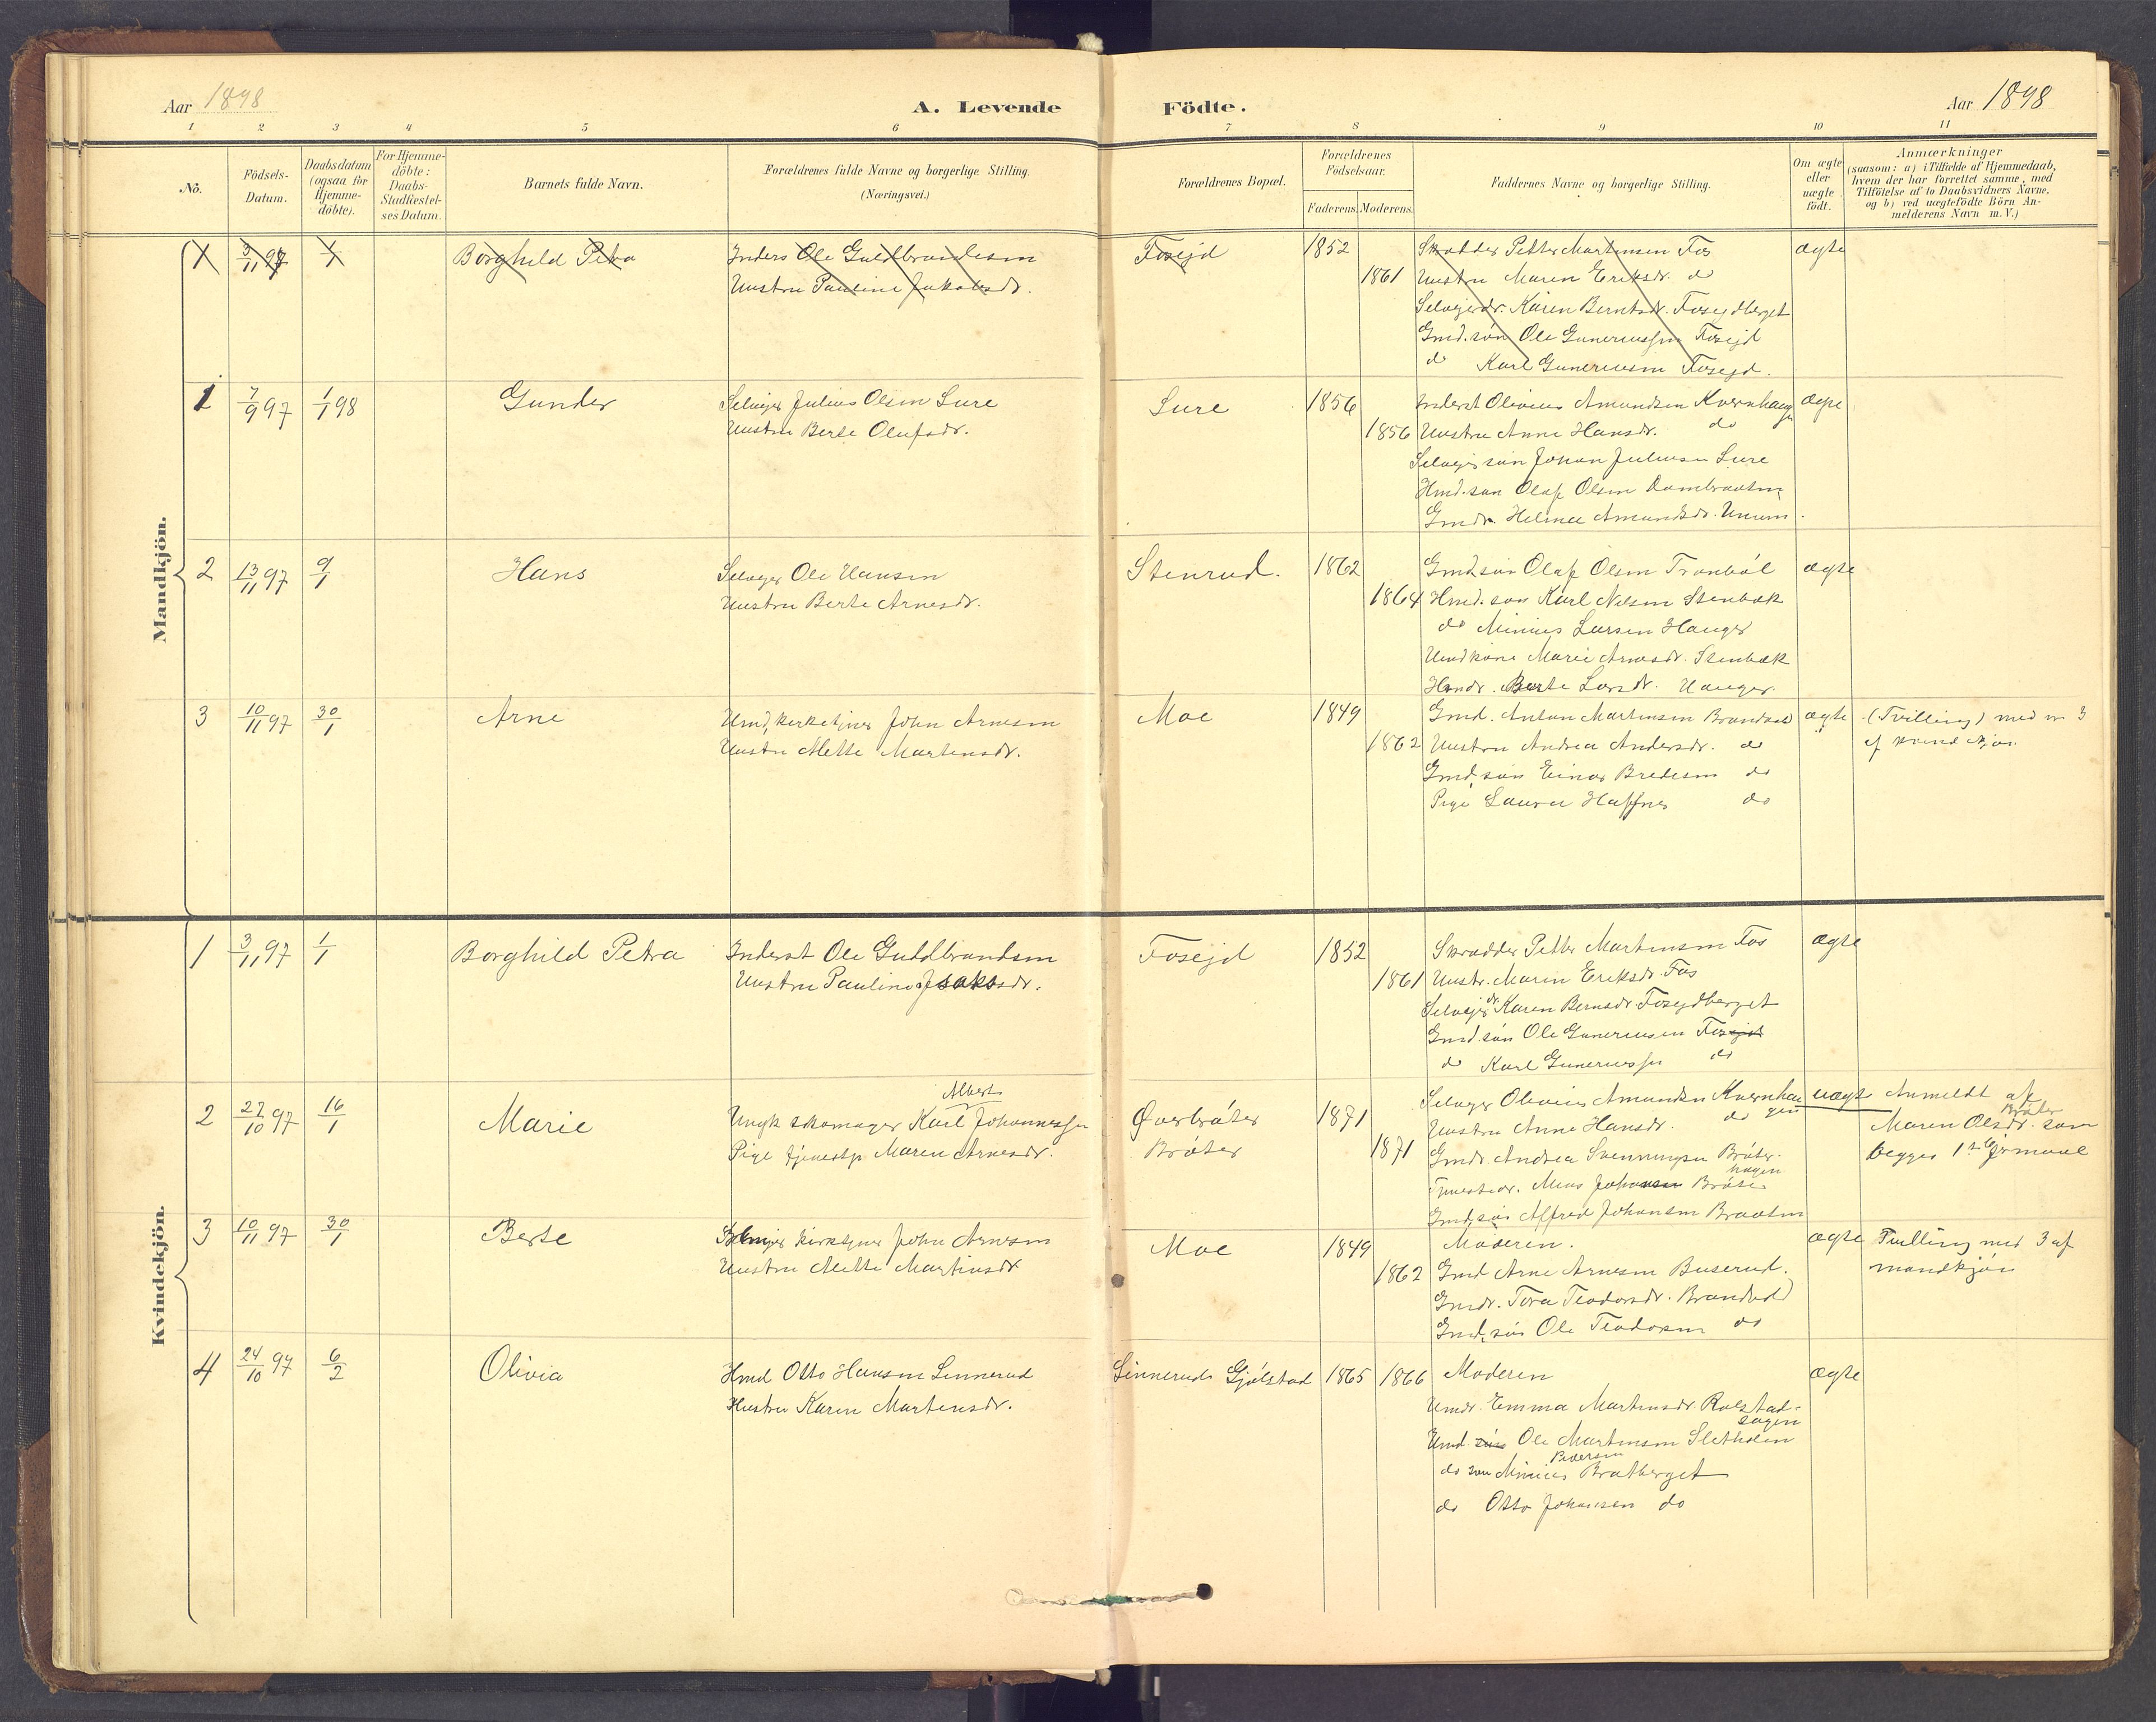 Aar 1898
A. Levende Födte.
Aar 1898
1 2 3 4 5 6 7 8 9 10 11
No.
Födsels-Datum.
Daabsdatum (ogsaa for Hjemme-döbte).
For Hjemme-döbte: Daabs-Stadfæstel-ses Datum.
Barnets fulde Navn.
Forældrenes fulde Navne og borgerlige Stilling.
(Næringsvei.)
Forældrenes Bopæl.
Forældrenes Födselsaar.
Faderens. Moderens.
Faddernes Navne og borgerlige Stilling.
Om ægte eller uægte födt.
Anmærkninger
(saasom: a) i Tilfælde af Hjemmedaab,
hvem der har forrettet samme, med
Tilföielse af to Daabsvidners Navne,
og b) ved uægtefödte Börn An-
melderens Navn m. V.)
Mandkjön.
1 3/11 97 1/1 Borghild Petra
Inders Ole Guldbrandsen
Hustru Pauline Jakobsdr.
Fosejd 1852 1861
Skrædder Petter Martinsen Fos
Hustru Maren Eriksdr. do
Selveierdr. Karen Berntsdr. Fosejdberget
Gmd. søn Ole Guneriussen Fosejd
do Karl Guneriusen Fosejd.
ægte
1 7/9 97 1/1 98 Gunder
Selveier Julius Olsen Lure
Hustru Berte Olufsdr.
Lure 1856 1856
Inderst Olivius Amundsen Kvernhaugen
Hustru Anne Hansdr. do
Selveiersøn Johan Juliusen Lure
Hmd. søn Olaf Olsen
Gmdr. Helmer Amundsdr.
ægte
2 13/11 97 9/1 Hans
Selveier Ole Hansen
Hustru Berte Arnesdr.
Stenrud. 1862 1864
Gmdsøn Olaf Olsen Tronbøl
Hmd. søn Karl Nilsen Stenbæk
do Minius Larsen Hauger
Hmdkone Marie Arnesdr. Stenbæk
Hmdr. Berte Larsdr. Hauger.
ægte
3 10/11 97 30/1 Arne
Hmd, kirketjner John Arnesen
Hustru Mette Martinsdr.
Moe 1849 1862
Gmd. Anton Martinsen Brandvol
Hustru Andrea Andersdr. do
Gmd, søn Einar Bredesen do
Pige Laura Haffner do
ægte
(Tvilling) med nr 3
af kvindekjøn
Kvindekjön.
1 3/11 97 1/1 Borghild Petra
Inderst Ole Guldbrandsen
Hustru Pauline Jsaksdr.
Fosejd 1852 1861
Skrædder Petter Martinsen Fos
Hustr. Maren Eriksdr. Fos
Selveier dr. Karen Bernsdr. Fosejdberget
Gmd. søn Ole Guneriusen Fosejd
do Karl Guneriussen do
ægte
2 27/10 97 16/1 Marie
Albert
Ungk skomager Karl Johannessen
Pige tjenestp Maren Arnesdr.
Øverbråten
Bråten
1871 1871
Selveier Olivius Amundsen Kvernhaugen
Hustru Anne Hansdr. do
Gmdr. Andrea Svenningsen Bråtenhagen
Tjenestedr. Mina Johansen Bråten
Gmd, søn Alfred Johansen Braaten
uægt
Anmeldt af
Maren Olsdr. Bråten som
begges 1ste Leiermaal
3 10/11 97 30/1 Berte
Selveier kirketjner John Arnesen
Hustru Mette Martinsdr
Moe 1849 1862
Moderen.
Gmd Arne Arnesen Buserud.
Gmdr. Tora Teodorsdr. Brandvol
Gmd, søn Ole Teodorsen do
ægte
Tvilling med 3 af
mandkjøn
4 24/10 97 6/2 Olivia
Hmd Otto Hansen Linnerud
Hustru Karen Martinsdr.
Linnerud Gjølstad 1865 1866
Moderen
Hmdr. Emma Martinsdr. Rolstadsagen
Hmd. søn Ole Martinsen Sletholen
do søn Minius Pedersen Bratberget
do Otto Johansen do
ægte